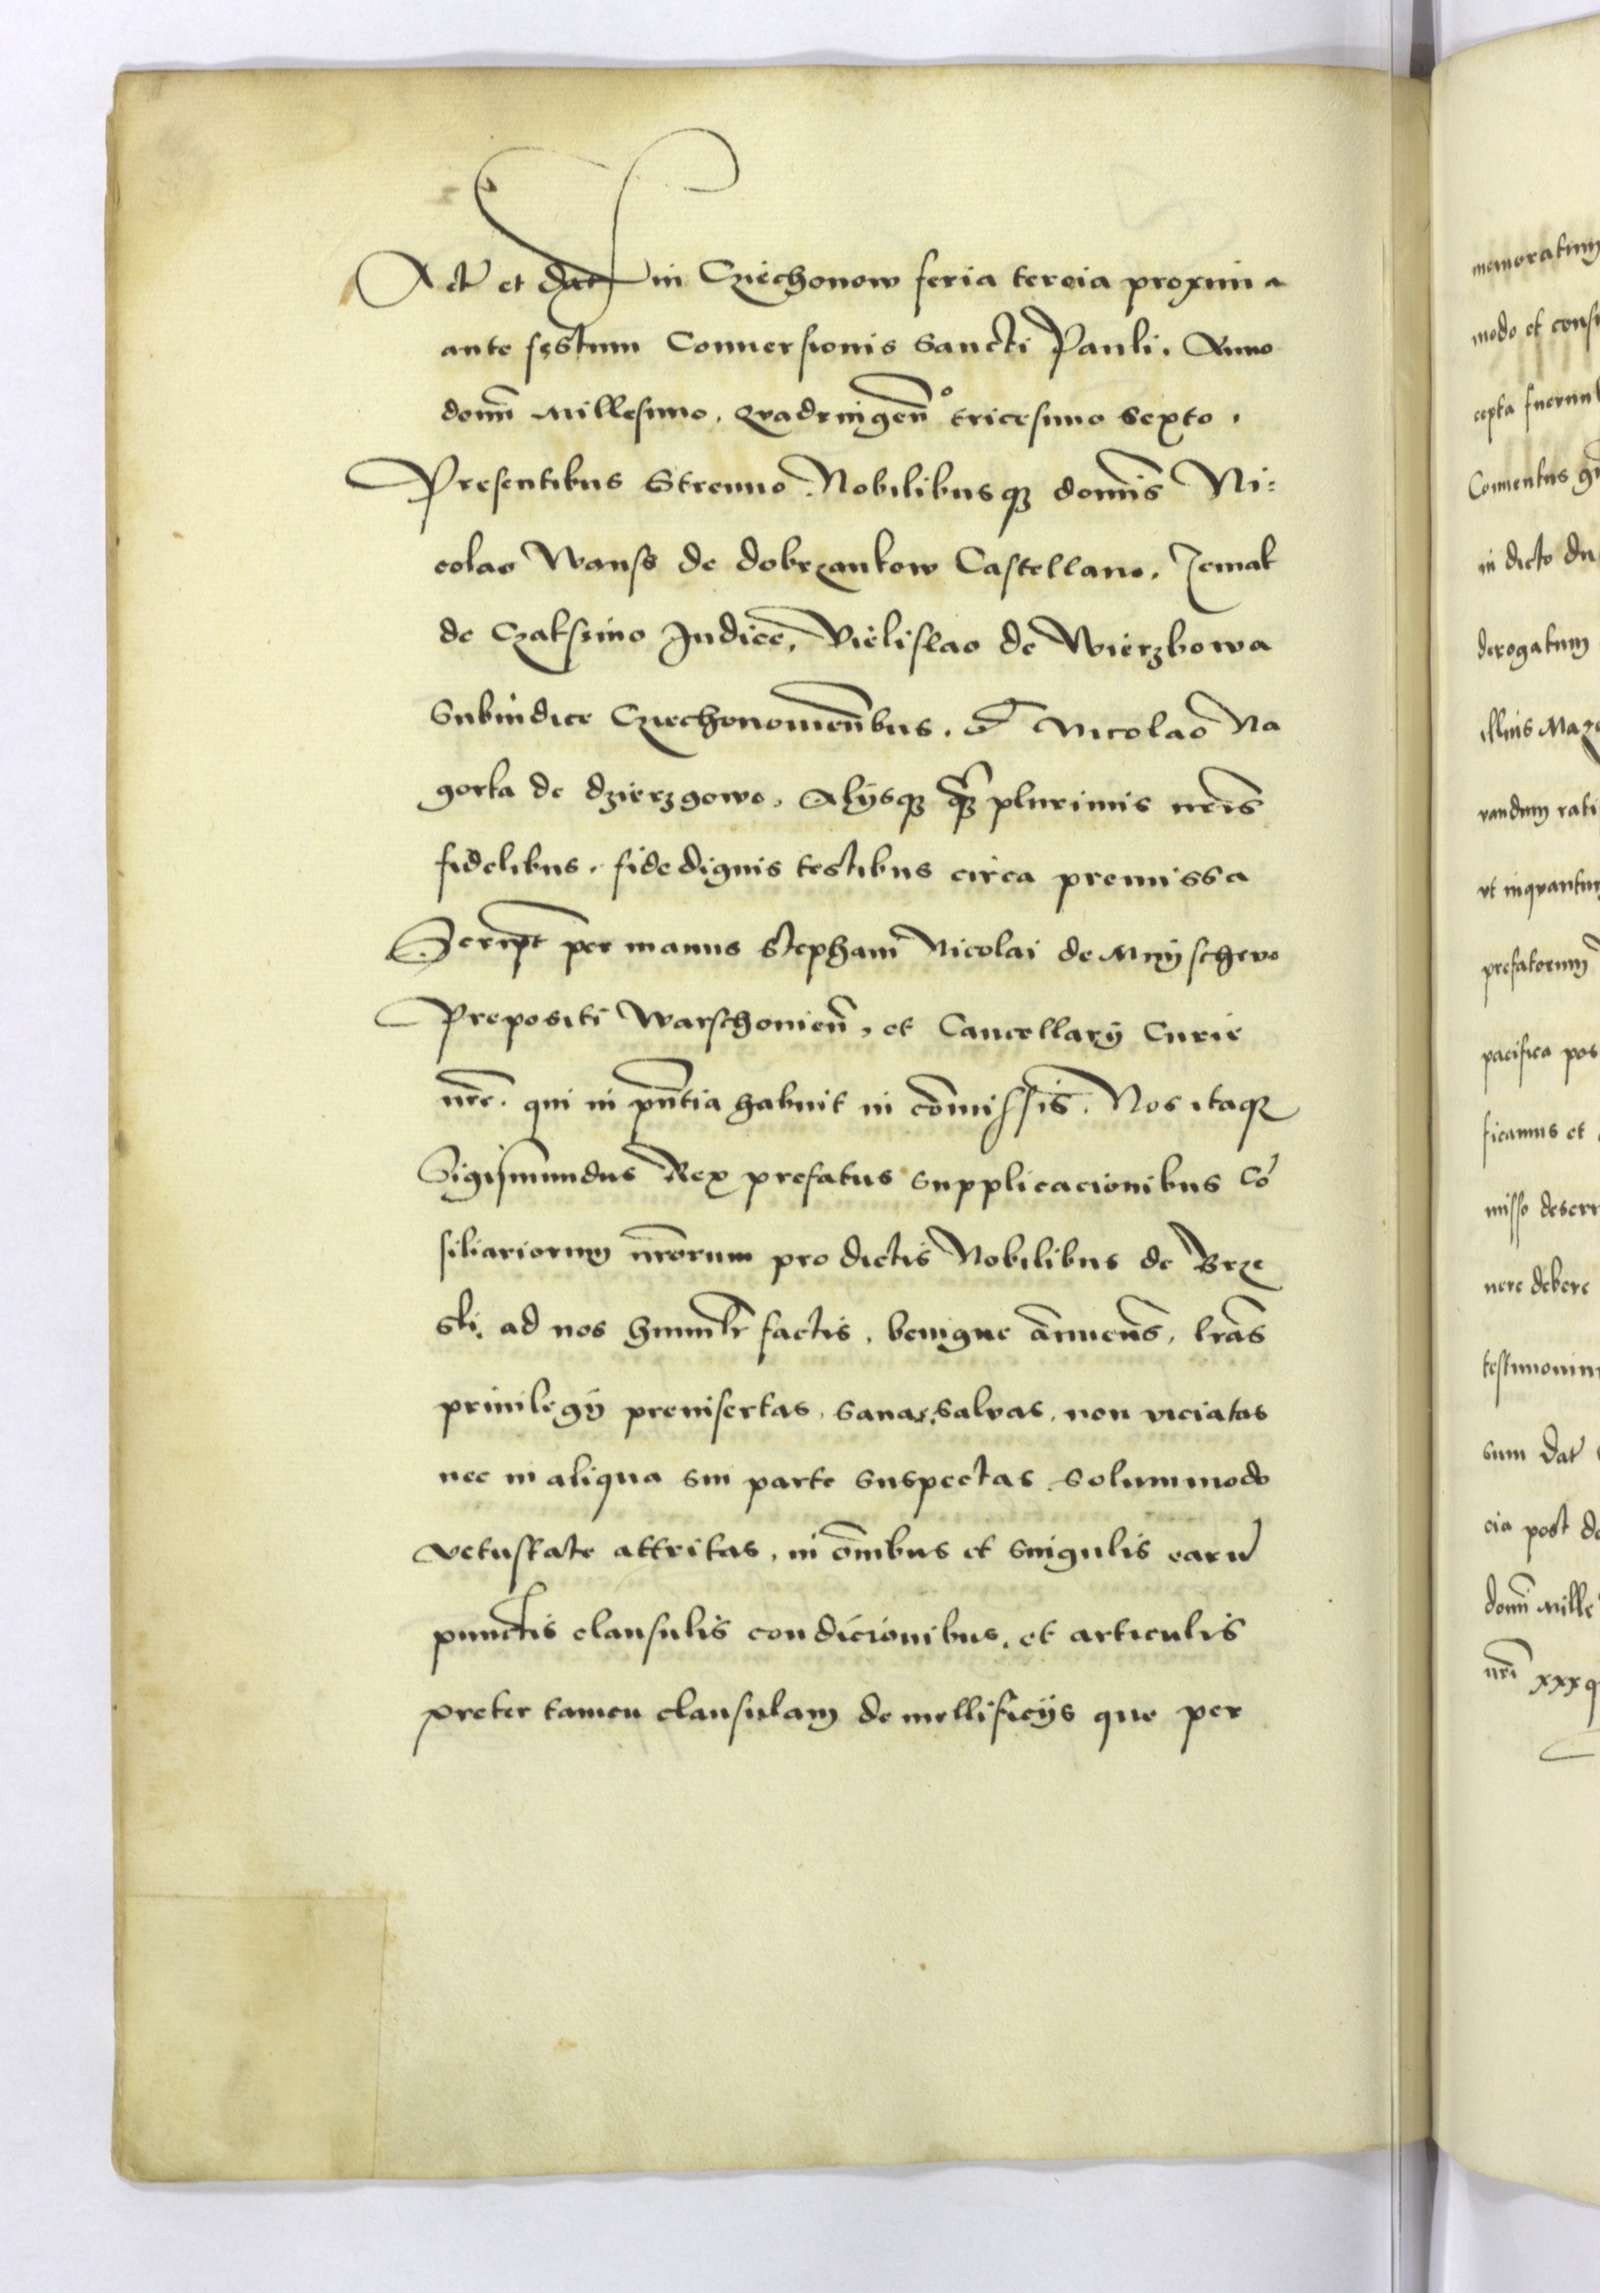 Act et dat in Cziechonow feria tercia proxima
ante festum Conuersionis Sancti Pauli. Anno
domī Millesimo. Quadringeñ° tricesimo sexto.
Presentibus Strenuo. Nobilibusqȝ domīs Ni:
colao Wanss de dobrzankow Castellano. Jemak
de Czaksimo Judice. Vielislao de Wierzbowa
Subiudice Cziechonouieñbus. Nicolao Na
gorka de dzierzgowo. Alÿsqȝ qȝ plurimis nrīs
fidelibus. fidedignis testibus circa premissa
Script per manus Stephani Nicolai de Mnÿschewo
Prepositi Warschouieñ, et Cancellarÿ Curie
nrē. qui in pñtia habuit in cōmissis. Nos itaqȝ
Sigismundus Rex prefatus supplicacionibus Cō
siliariorum nrōrum pro dictis Nobilibus de Brze
ski. ad nos humilr̄ factis. benigne ānuens, lrās
priuilegÿ preinsertas. sanas. saluas. non viciatas
nec in aliqua sui parte suspectas. solummodo
vetustate attritas. in ōmibus et singulis earū
punctis clausulis condicionibus. et articulis
preter tamen clausulam de mellificÿs que per
memoratum
modo et cons
cepta fuerunt
Conuentus
in dicto du
derogatum
illius Mazo
uandum rati
vt inquantum
prefatorum
pacifica pos
ficamus et
misso deser
nere debere
testimonium
sum dat
cia post do
domī Mille
nrī xxx q